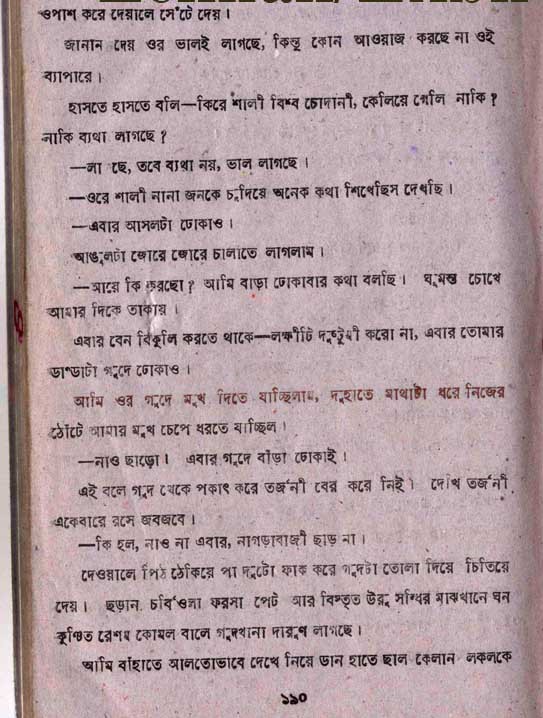 ওপাশ করে দেয়ালে সেঁটে দেয়।
জানান দেয় ওর ভালই লাগছে, কিন্তু কোন আওয়াজ করছে না ওই
ব্যাপারে।
হাসতে হাসতে বলি—কিরে শালী বিশ্ব চোদানী, কেলিয়ে গেলি নাকি?
নাকি ব্যথা লাগছে?
—লা ছে, তবে ব্যথা নয়, ভাল লাগছে।
—ওরে শালী নানা জনকে চুদিয়ে অনেক কথা শিখেছিস দেখছি।
—এবার আসলটা ঢোকাও।
আঙুলটা জোরে জোরে চালাতে লাগলাম।
—আরে কি করছো? আমি বাড়া ঢোকাবার কথা বলছি। ঘুমন্ত চোখে
আমার দিকে তাকায়।
এবার যেন বিকুলি করতে থাকে—লক্ষীটি দুষ্টুমী করো না, এবার তোমার
ডান্ডাটা গুদে ঢোকাও।
আমি ওর গুদে মুখ দিতে যাচ্ছিলাম, দুহাতে মাথাটা ধরে নিজের
ঠোঁটে আমার মুখ চেপে ধরতে যাচ্ছিল।
—নাও ছাড়ো। এবার গুদে বাঁড়া ঢোকাই।
এই বলে গুদ থেকে পকাৎ করে তর্জনী বের করে নিই। দেখি তর্জনী
একেবারে রসে জবজবে।
—কি হল, নাও না এবার, নাগড়াবাজী ছাড় না।
দেওয়ালে পিঠ ঠেকিয়ে পা দুটো ফাক করে গুদটা তোলা দিয়ে চিতিয়ে
দেয়। ছড়ান চর্বিওলা ফরসা পেট আর বিস্তৃত উরু সন্ধির মাঝখানে ঘন
কুঞ্চিত রেশম কোমল বালে গুদখানা দারুণ লাগছে।
আমি বাঁহাতে আলতোভাবে দেখে নিয়ে ডান হাতে ছাল কেলান লকলকে
১১০